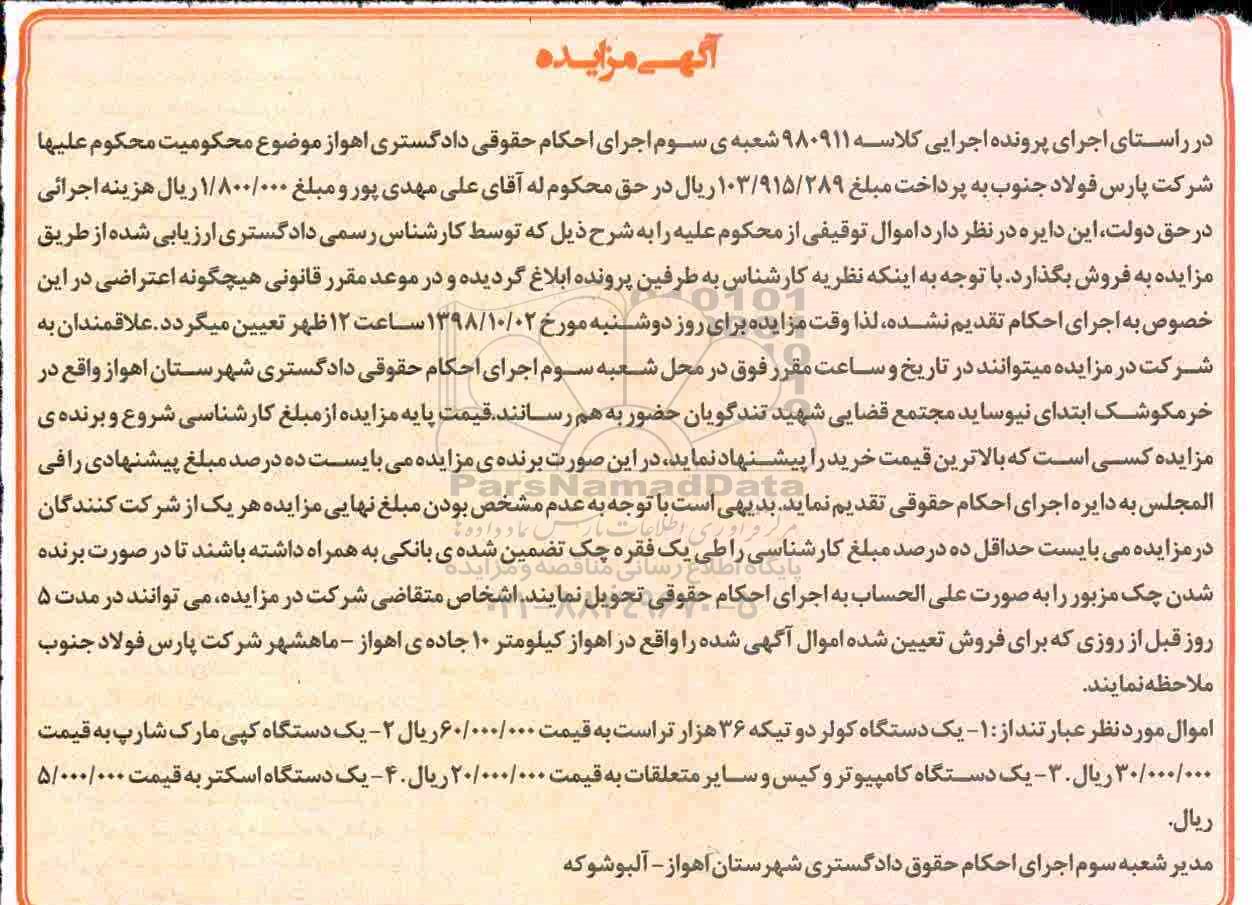 آگهی مزایده
در راستای اجرای پرونده اجرایی کلاسه ۹۸۰۹۱۱ شعبه ی سوم اجرای احکام حقوقی دادگستری اهواز موضوع محکومیت محکوم علیها
شرکت پارس فولاد جنوب به پرداخت مبلغ ۱۰۳/۹۱۵/۲۸۹ ریال در حق محکوم له آقای علی مهدی پور و مبلغ ۱/۸۰۰/۰۰۰ ریال هزینه اجرائی
در حق دولت، این دایره در نظر دارد اموال توقیفی از محکوم علیه را به شرح ذیل که توسط کارشناس رسمی دادگستری ارزیابی شده از طریق
مزایده به فروش بگذارد. با توجه به اینکه نظریه کارشناس به طرفین پرونده ابلاغ گردیده و در موعد مقرر قانونی هیچگونه اعتراضی در این
خصوص به اجرای احکام تقدیم نشده، لذا وقت مزایده برای روز دوشنبه مورخ ۱۳۹۸/۱۰/۰۲ ساعت ۱۲ ظهر تعیین میگردد. علاقمندان به
شرکت در مزایده میتوانند در تاریخ و ساعت مقرر فوق در محل شعبه سوم اجرای احکام حقوقی دادگستری شهرستان اهواز واقع در
خرمکوشک ابتدای نیوساید مجتمع قضایی شهید تندگویان حضور به هم رسانند. قیمت پایه مزایده از مبلغ کارشناسی شروع و برنده ی
مزایده کسی است که بالاترین قیمت خرید را پیشنهاد نماید، در این صورت برنده ی مزایده می بایست ده درصد مبلغ پیشنهادی را فی
المجلس به دایره اجرای احکام حقوقی تقدیم نماید. بدیهی است با توجه به عدم مشخص بودن مبلغ نهایی مزایده هر یک از شرکت کنندگان
در مزایده می بایست حداقل ده درصد مبلغ کارشناسی را طی یک فقره چک تضمین شده ی بانکی به همراه داشته باشند تا در صورت برنده
شدن چک مزبور را به صورت علی الحساب به اجرای احکام حقوقی تحویل نمایند. اشخاص متقاضی شرکت در مزایده، می توانند در مدت ۵
روز قبل از روزی که برای فروش تعیین شده اموال آگهی شده را واقع در اهواز کیلومتر ۱۰ جاده ی اهواز - ماهشهر شرکت پارس فولاد جنوب
ملاحظه نمایند.
اموال مورد نظر عبارتند از: ۱- یک دستگاه کولر دو تیکه ۳۶ هزار تراست به قیمت ۶۰/۰۰۰/۰۰۰ ریال ۲- یک دستگاه کپی مارک شارپ به قیمت
۳۰/۰۰۰/۰۰۰ ریال. ۳- یک دستگاه کامپیوتر و کیس و سایر متعلقات به قیمت ۲۰/۰۰۰/۰۰۰ ریال. ۴- یک دستگاه اسکنر به قیمت ۵/۰۰۰/۰۰۰
ریال.
مدیر شعبه سوم اجرای احکام حقوق دادگستری شهرستان اهواز - آلبوشوکه
ParsNamadData
مرکز فرآوری اطلاعات پارس نماد داده ها
پایگاه اطلاع رسانی مناقصه و مزایده
۰۲۱-۸۸۳۴۹۶۷۰-۵